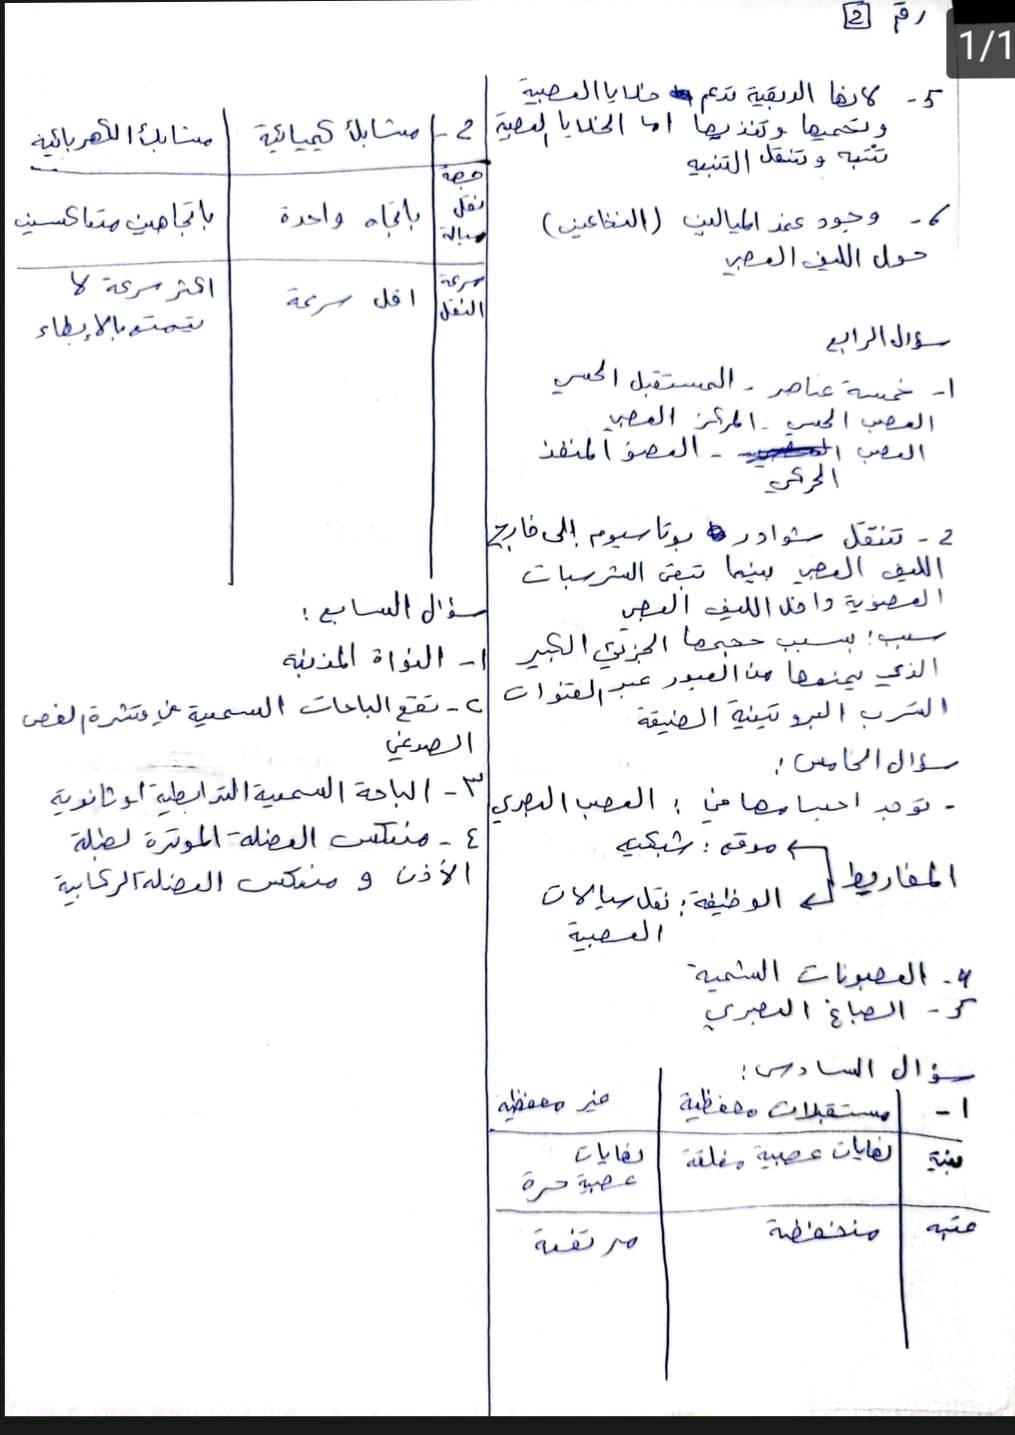 رقم 2
1/1
5- لانها الدبقية تدعم خلايا العصبية
وتحميها وتغذيها اما الخلايا العصبية
تتنبه وتنقل التنبيه
6- وجود غمد الميالين (النخاعين)
حول الليف العصبي
سؤال الرابع
1- خمسة عناصر - المستقبل الحسي
العصب الحسي - المركز العصبي
العصب - العضو المنفذ
الحركي
2- تنتقل شوارد بوتاسيوم إلى خارج
الليف العصبي بينما تبقى الشرسبات
العضوية داخل الليف العصبي
سبب: بسبب حجمها الجزيئي الكبير
الذي يمنعها من العبور عبر القنوات
التسرب البروتينية الضيقة
سؤال الخامس:
- توجد اجسامها في: العصب البصري
المغاريط
موقع: شبكيه
الوظيفة: نقل سيالات
العصبية
4- العصبونات الشمية
5- الصباغ البصري
سؤال السادس:
1- مستقبلات محفظية غير محفظية
بنية نهايات عصبية مغلفة نهايات
عصبية حرة
عتبه منخفظة مرتفعة
2- مشابك كيميائية مشابك الكهربائية
جهة
نقل باتجاه واحدة باتجاهين متعاكسين
سيالة
سرعة
النقل اقل سرعة اكثر سرعة لا
تتمتع بالإبطاء
سؤال السابع:
1- النواة المذنبة
2- تقع الباحات السمعية في قشرة الفص
الصدغي
٣- الباحة السمعية الترابطية او ثانوية
٤- منعكس العضلة الموترة لطبلة
الأذن و منعكس العضلة الركابية